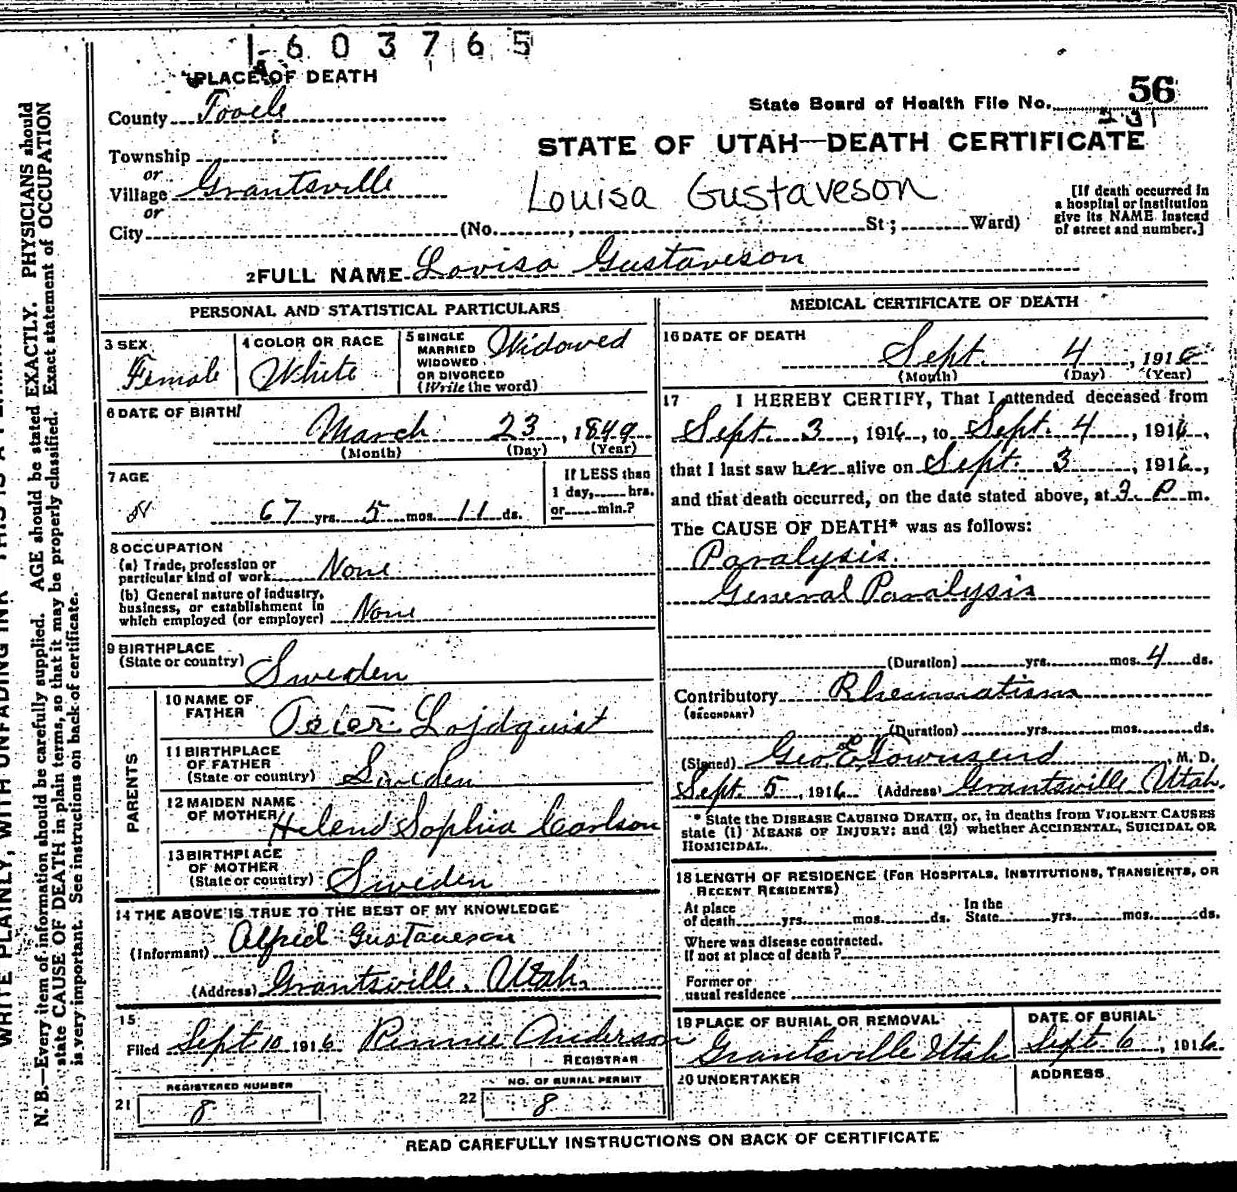 1603765
PLACE OF DEATH
County Tooele
State Board of Health File No. 56
231
STATE OF UTAH—DEATH CERTIFICATE
Township
or
Village Grantsville
or
Louisa Gustaveson
[If death occurred in
a hospital or institution
give its NAME instead
of street and number.]
City (No. , St; Ward)
2 FULL NAME Lovisa Gustaveson
PERSONAL AND STATISTICAL PARTICULARS
3 SEX
Female
4 COLOR OR RACE
White
5 SINGLE
MARRIED
WIDOWED
OR DIVORCED
(Write the word)
Widowed
6 DATE OF BIRTH
March 23, 1849
(Month) (Day) (Year)
7 AGE
67 yrs. 5 mos. 11 ds.
If LESS than
1 day, hrs.
or min.?
8 OCCUPATION
(a) Trade, profession or
particular kind of work None
(b) General nature of industry,
business, or establishment in
which employed (or employer) None
9 BIRTHPLACE
(State or country) Sweden
PARENTS
10 NAME OF
FATHER Peter Lojdquist
11 BIRTHPLACE
OF FATHER
(State or country) Sweden
12 MAIDEN NAME
OF MOTHER Helend Sophia Carlson
13 BIRTHPLACE
OF MOTHER
(State or country) Sweden
14 THE ABOVE IS TRUE TO THE BEST OF MY KNOWLEDGE
(Informant) Alfred Gustaveson
(Address) Grantsville, Utah.
15
Filed Sept 10 1916 Anderson
REGISTRAR
REGISTERED NUMBER
21 8
NO. OF BURIAL PERMIT
22 8
MEDICAL CERTIFICATE OF DEATH
16 DATE OF DEATH
Sept. 4, 1916
(Month) (Day) (Year)
17 I HEREBY CERTIFY, That I attended deceased from
Sept. 3, 1916, to Sept. 4, 1916,
that I last saw her alive on Sept. 3, 1916,
and that death occurred, on the date stated above, at 3 P m.
The CAUSE OF DEATH* was as follows:
Paralysis.
General Paralysis
(Duration) yrs. mos. 4 ds.
Contributory Rheumatism
(SECONDARY)
(Duration) yrs. mos. ds.
(Signed) Geo E Townsend, M. D.
Sept. 5, 1916 (Address) Grantsville Utah.
* State the DISEASE CAUSING DEATH, or, in deaths from VIOLENT CAUSES
state (1) MEANS OF INJURY; and (2) whether ACCIDENTAL, SUICIDAL OR
HOMICIDAL.
18 LENGTH OF RESIDENCE (FOR HOSPITALS, INSTITUTIONS, TRANSIENTS, OR
RECENT RESIDENTS)
At place
of death yrs. mos. ds.
In the
State yrs. mos. ds.
Where was disease contracted.
if not at place of death?
Former or
usual residence
19 PLACE OF BURIAL OR REMOVAL
Grantsville Utah
DATE OF BURIAL
Sept. 6, 1916.
20 UNDERTAKER
ADDRESS
READ CAREFULLY INSTRUCTIONS ON BACK OF CERTIFICATE
N. B.—Every item of information should be carefully supplied. AGE should be stated EXACTLY. PHYSICIANS should
state CAUSE OF DEATH in plain terms, so that it may be properly classified. Exact statement of OCCUPATION
is very important. See instructions on back of certificate.
WRITE PLAINLY, WITH UNFADING INK THIS IS A